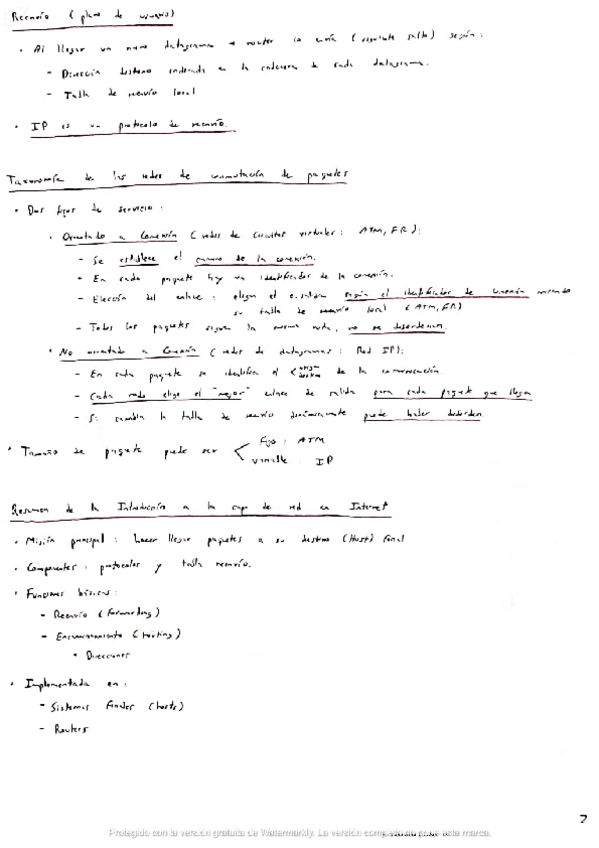 Reenvío (plano de usuario)
• Al llegar un nuevo datagrama a router lo envía (siguiente salto) según:
- Dirección destino indicada en la cabecera de cada datagrama.
- Tabla de reenvío local
• IP es un protocolo de reenvío.
Taxonomía de las redes de conmutación de paquetes
• Dos tipos de servicio:
• Orientado a Conexión (redes de circuitos virtuales: ATM, FR):
- Se establece el camino de la conexión.
- En cada paquete hay un identificador de la conexión.
- Elección del enlace: eligen el e. salida según el identificador de conexión mirando
su tabla de reenvío local (ATM, FR)
- Todos los paquetes siguen la misma ruta, no se desordenan.
• No orientado a Conexión (redes de datagramas: Red IP):
- En cada paquete se identifica el origen destino de la comunicación
- Cada nodo elige el "mejor" enlace de salida para cada paquete que llega
- Si cambia la tabla de reenvío dinámicamente puede haber desorden
• Tamaño de paquete puede ser fijo: ATM
variable: IP
Resumen de la Introducción a la capa de red en Internet
• Misión principal: hacer llegar paquetes a su destino (Host) final
• Componentes: protocolos y tabla reenvío.
• Funciones básicas:
- Reenvío (forwarding)
- Encaminamiento (routing)
• Direcciones
• Implementada en:
- Sistemas finales (hosts)
- Routers
7
Protegido con la versión gratuita de Watermarkly. La versión completa no pone esta marca.